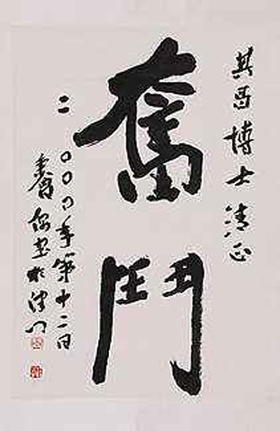 其昌博士清正
奮鬥
二〇〇〇年第十二日
書於津门